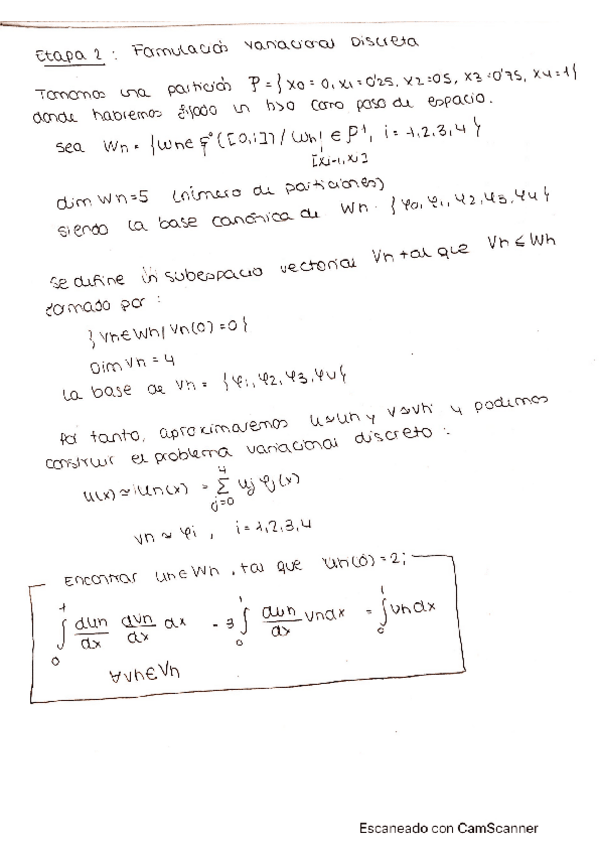 Etapa 2 : Formulación Variacional Discreta
Tomamos una partición P = { x0 = 0, x1 = 0'25, x2 = 0'5, x3 = 0'75, x4 = 1 }
donde habremos fijado un h>0 como paso de espacio.
sea Wh = { wh ∈ ℭ⁰([0,1]) / wh| ∈ P¹, i = 1,2,3,4 }
[xi-1, xi]
dim Wh = 5 (número de particiones)
siendo la base canónica de Wh { φ0, φ1, φ2, φ3, φ4 }
se define un subespacio vectorial Vh tal que Vh ≤ Wh
formado por :
{ vh ∈ Wh / vh(0) = 0 }
Dim Vh = 4
La base de Vh = { φ1, φ2, φ3, φ4 }
Por tanto, aproximaremos u ≈ uh y v ≈ vh y podemos
construir el problema variacional discreto :
u(x) ≈ uh(x) = Σ_{j=0}^{4} uj φj(x)
vh ≈ φi , i = 1,2,3,4
Encontrar uh ∈ Wh , tal que uh(0) = 2;
∫_0^1 duh/dx dvh/dx dx - 3 ∫_0^1 duh/dx vh dx = ∫_0^1 vh dx
∀ vh ∈ Vh
Escaneado con CamScanner